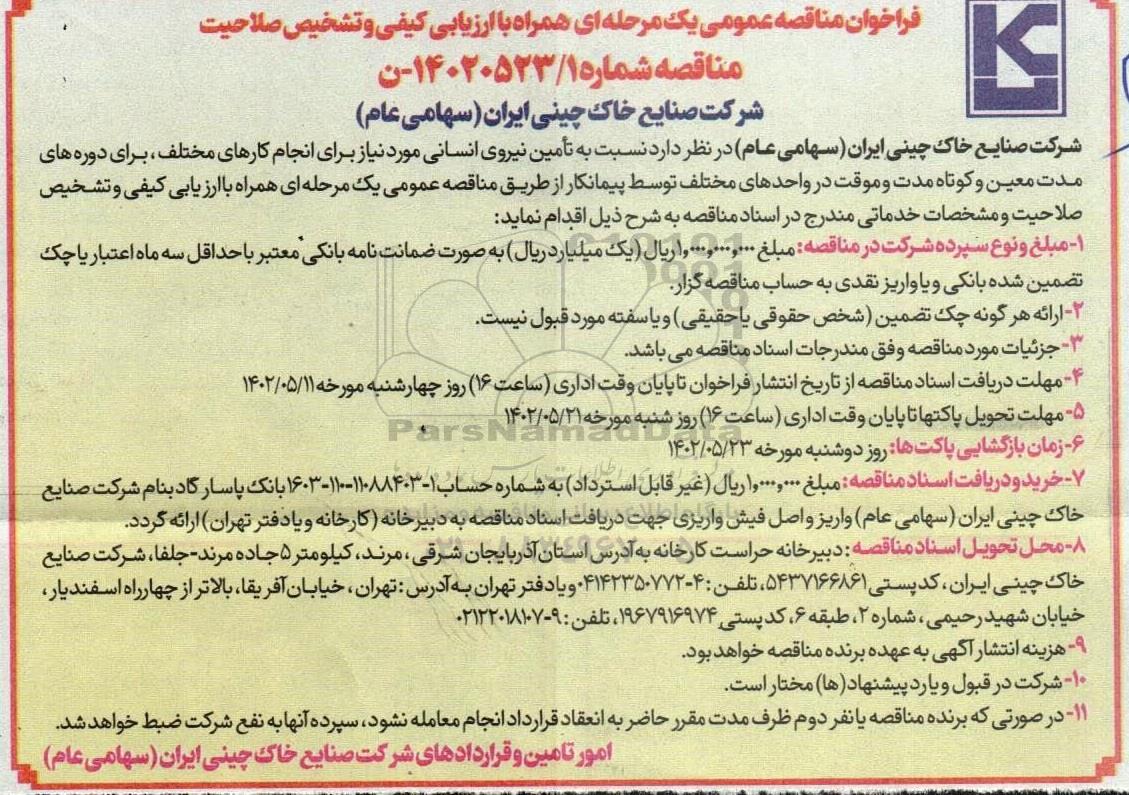 فراخوان مناقصه عمومی یک مرحله ای همراه با ارزیابی کیفی و تشخیص صلاحیت
مناقصه شماره ۱۴۰۲۰۵۲۳/۱-ن
شرکت صنایع خاک چینی ایران (سهامی عام)
شرکت صنایع خاک چینی ایران (سهامی عام) در نظر دارد نسبت به تأمین نیروی انسانی مورد نیاز برای انجام کارهای مختلف، برای دوره های
مدت معین و کوتاه مدت و موقت در واحدهای مختلف توسط پیمانکار از طریق مناقصه عمومی یک مرحله ای همراه با ارزیابی کیفی و تشخیص
صلاحیت و مشخصات خدماتی مندرج در اسناد مناقصه به شرح ذیل اقدام نماید:
۱- مبلغ و نوع سپرده شرکت در مناقصه: مبلغ ۱,۰۰۰,۰۰۰,۰۰۰ ریال (یک میلیارد ریال) به صورت ضمانت نامه بانکی معتبر با حداقل سه ماه اعتبار یا چک
تضمین شده بانکی و یا واریز نقدی به حساب مناقصه گزار.
۲- ارائه هر گونه چک تضمین (شخص حقوقی یا حقیقی) و یا سفته مورد قبول نیست.
۳- جزئیات مورد مناقصه وفق مندرجات اسناد مناقصه می باشد.
۴- مهلت دریافت اسناد مناقصه از تاریخ انتشار فراخوان تا پایان وقت اداری (ساعت ۱۶) روز چهارشنبه مورخه ۱۴۰۲/۰۵/۱۱
۵- مهلت تحویل پاکتها تا پایان وقت اداری (ساعت ۱۶) روز شنبه مورخه ۱۴۰۲/۰۵/۲۱
ParsNamadData
۶- زمان بازگشایی پاکت ها: روز دوشنبه مورخه ۱۴۰۲/۰۵/۲۳
۷- خرید و دریافت اسناد مناقصه: مبلغ ۱,۰۰۰,۰۰۰ ریال (غیر قابل استرداد) به شماره حساب ۱-۱۱۰۸۸۴۰۳-۱۱۰-۱۶۰۳ بانک پاسارگاد بنام شرکت صنایع
خاک چینی ایران (سهامی عام) واریز و اصل فیش واریزی جهت دریافت اسناد مناقصه به دبیرخانه (کارخانه و یا دفتر تهران) ارائه گردد.
۸- محل تحویل اسناد مناقصه: دبیرخانه حراست کارخانه به آدرس استان آذربایجان شرقی، مرند، کیلومتر ۵ جاده مرند-جلفا، شرکت صنایع
خاک چینی ایران، کدپستی ۵۴۳۷۱۶۶۸۶۱، تلفن: ۴-۰۴۱۴۲۳۵۰۷۷۲ و یا دفتر تهران به آدرس: تهران، خیابان آفریقا، بالاتر از چهارراه اسفندیار،
خیابان شهید رحیمی، شماره ۲، طبقه ۶، کد پستی ۱۹۶۷۹۱۶۹۷۴، تلفن: ۹-۰۲۱۲۲۰۱۸۱۰۷
۹- هزینه انتشار آگهی به عهده برنده مناقصه خواهد بود.
۱۰- شرکت در قبول و یا رد پیشنهاد (ها) مختار است.
۱۱- در صورتی که برنده مناقصه یا نفر دوم ظرف مدت مقرر حاضر به انعقاد قرارداد انجام معامله نشود، سپرده آنها به نفع شرکت ضبط خواهد شد.
امور تامین و قراردادهای شرکت صنایع خاک چینی ایران (سهامی عام)